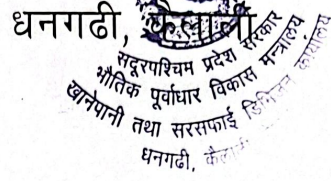 धनगढी, कैलाली
सदूरपश्चिम प्रदेश सरकार
भौतिक पूर्वाधार विकास मन्त्रालय
खानेपानी तथा सरसफाई डिभिजन कार्यालय
धनगढी,